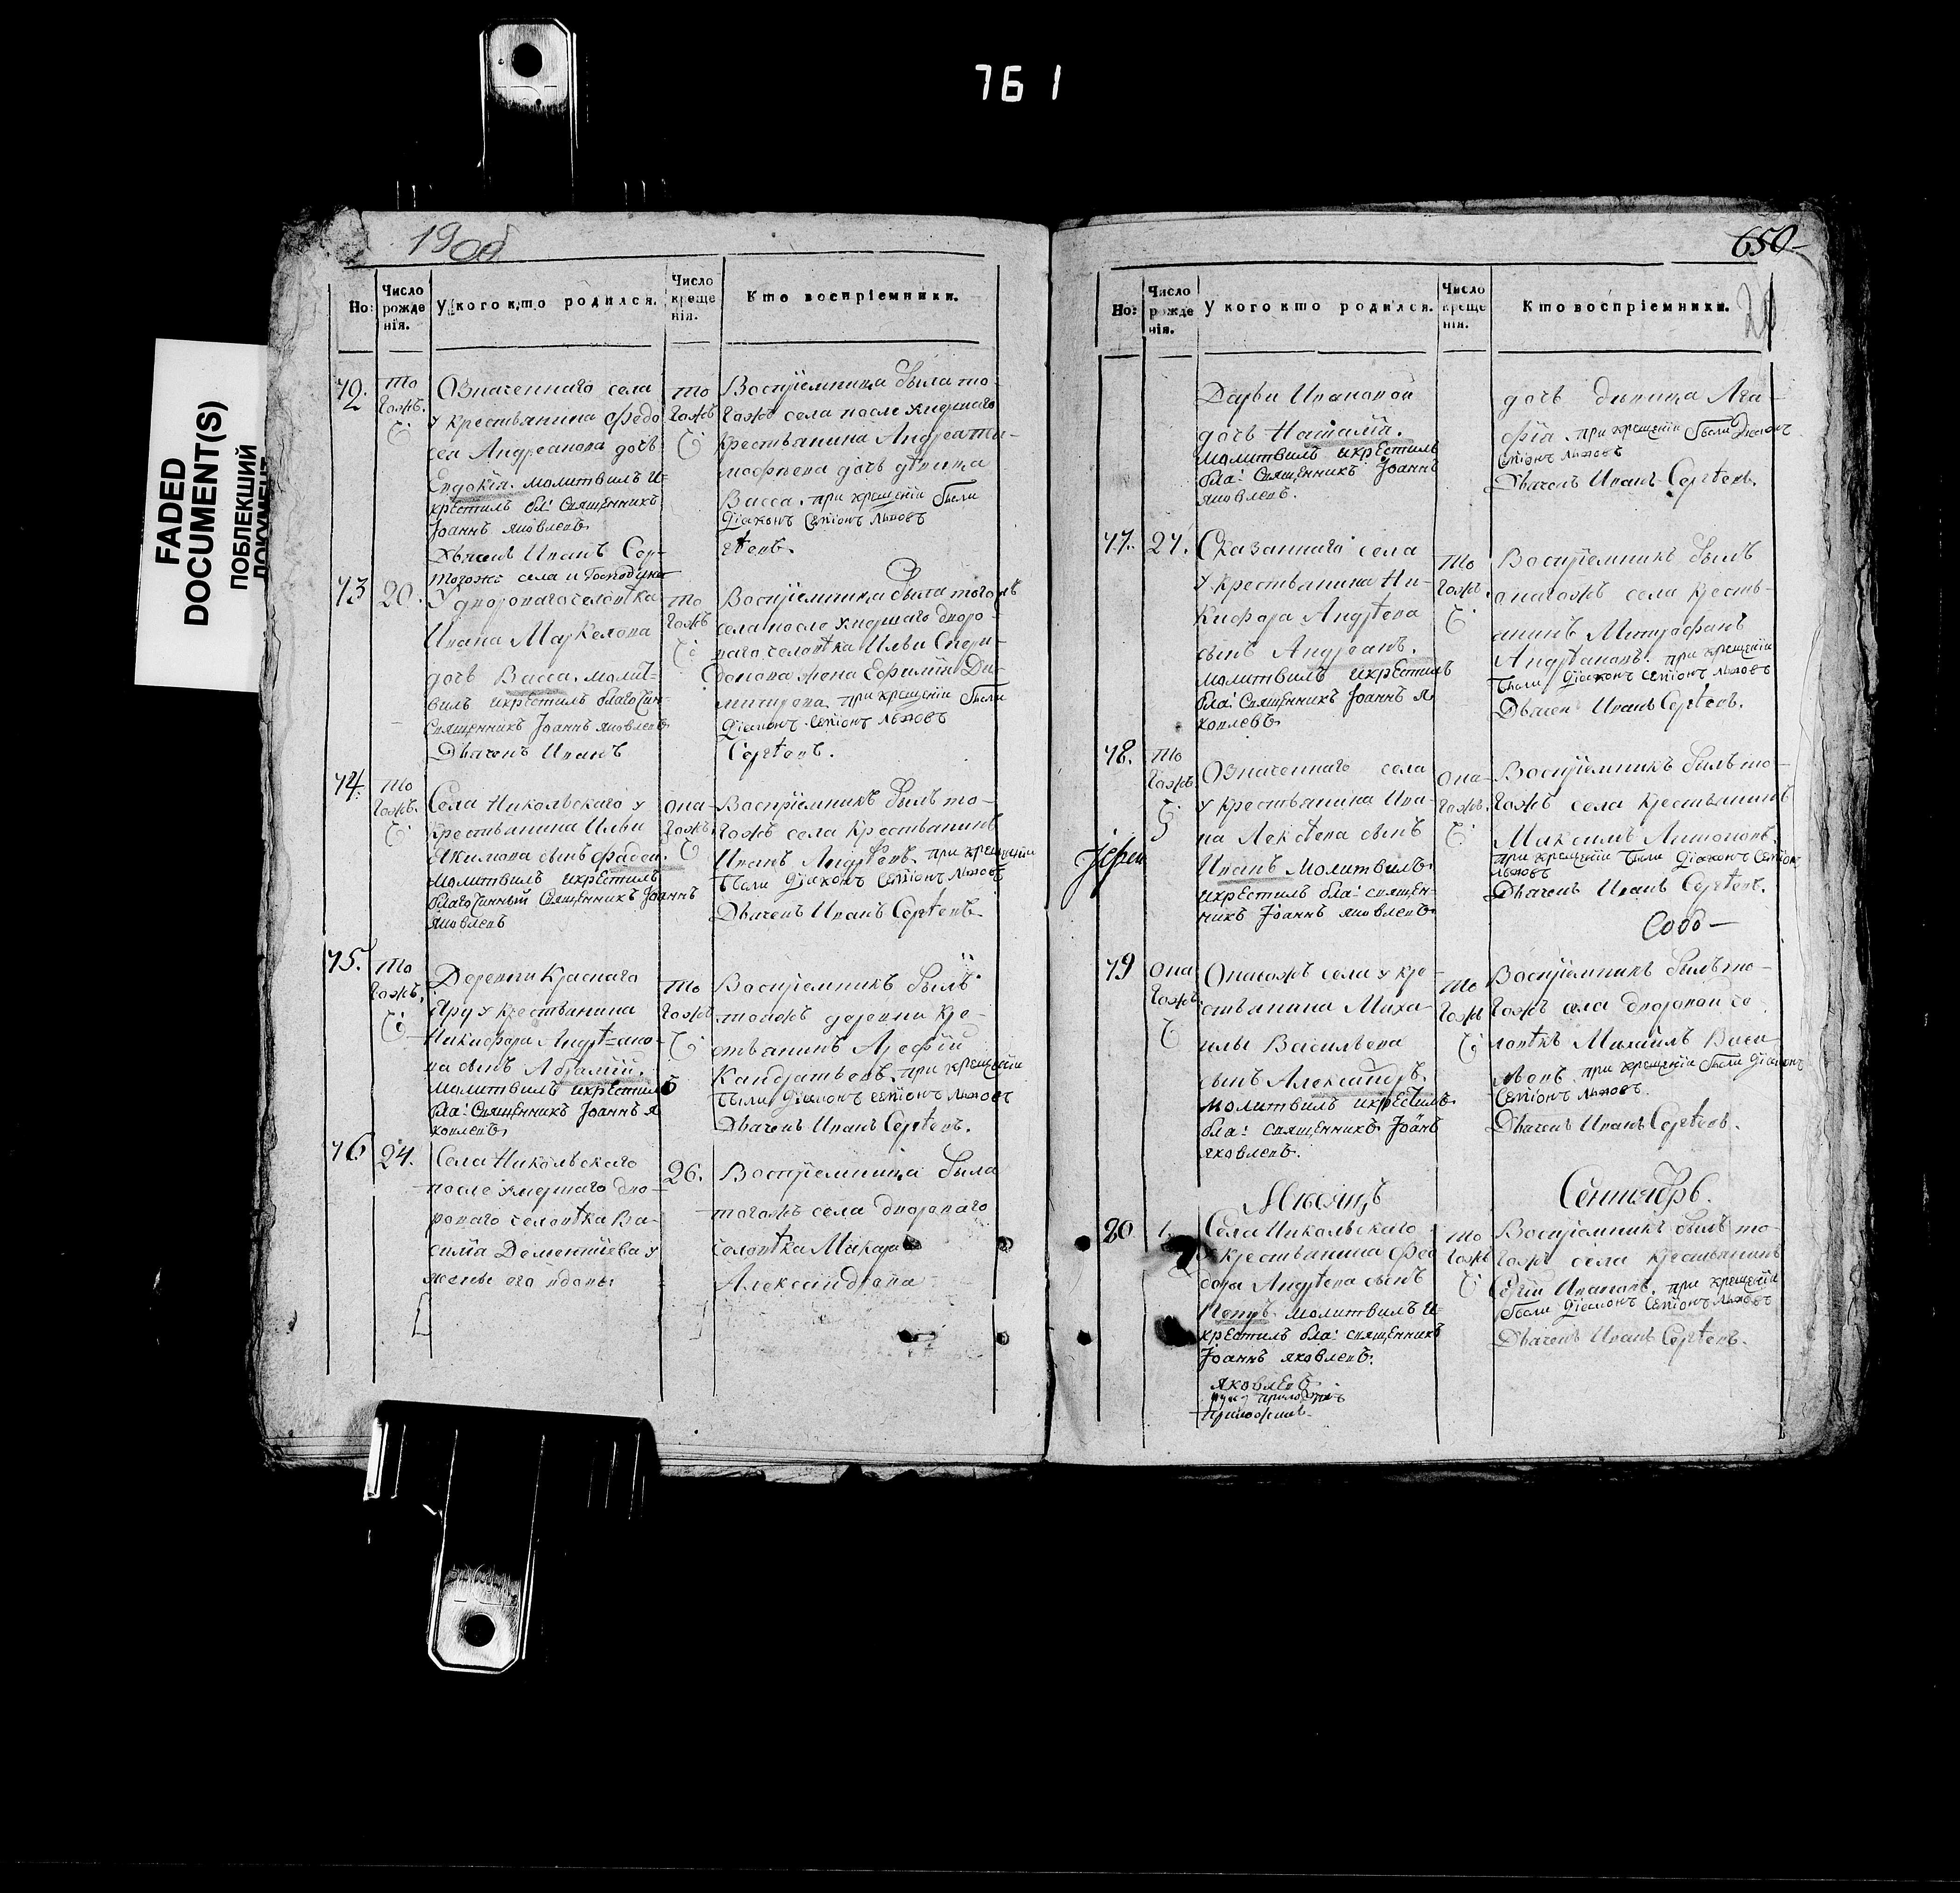 761
FADED
DOCUMENT(S)
ПОБЛЕКШИЙ
ДОКУМЕНТ
19 об
Но:
Число рожденія.
У кого кто родился.
Число крещенія.
Кто воспріемники.
72.
то
гожъ
Означеннаго села
у крестьянина Федо
сея Андреанова дочь
Евдокіа. молитвилъ и
крестилъ бла: Священникъ
Іоаннъ Яковлевъ
Дьячекъ Иванъ Сер-
то
гожъ
Воспріемница была то-
гожъ села после умершаго
крестьянина Андреа Ти-
мофѣева дочь дѣвица
Васса. при крещеніи были
Діаконъ Семіонъ Львовъ
гѣевъ.
73
20.
тогожъ села и Господина
У двороваго человѣка
Ивана Маркелова
дочь Васса. молит-
вилъ икрестилъ благочин
Священникъ Іоаннъ Яковлевъ
Дьячекъ Иванъ
то
гожъ
Воспріемница была тогожъ
села после умершаго дворо-
ваго человѣка Ильи Спири-
донова жена Ефимія Ди-
митріева при крещеніи были
Діаконъ Семіонъ Львовъ
Сергѣевъ.
74.
то
гожъ
Села Никольскаго у
крестьянина Ильи
Якимова сынъ Фадей.
молитвилъ икрестилъ
благочинный Священникъ Іоаннъ
Яковлевъ
она-
гожъ
Воспріемникъ былъ то-
гожъ села крестьянинъ
Иванъ Андрѣевъ. при крещеніи
были Діаконъ Семіонъ Львовъ
Дьячекъ Иванъ Сергѣевъ
75.
то
гожъ
Деревни Краснаго
Яру у крестьянина
Никифора Андрѣяно-
ва сынъ Абрамій.
молитвилъ икрестилъ
бла: Священникъ Іоаннъ Я
ковлевъ
то
гожъ
Воспріемникъ былъ
тоижъ деревни кре-
стьянинъ Арефій
Кандратьевъ. при крещеніи
были Діаконъ Семіонъ Львовъ
Дьячекъ Иванъ Сергѣевъ.
76
24.
Села Никольскаго
после умершаго дво-
роваго человѣка Ва-
силія Дементіева у
жены его вдовы
26.
Воспріемница была
тогожъ села двороваго
человѣка Макара
Александрова
650
20
Но:
Число рожденія.
У кого кто родился.
Число крещенія.
Кто воспріемники.
Дарьи Ивановой
дочь Наталія.
молитвилъ икрестилъ
бла: Священникъ Іоаннъ
Яковлевъ.
дочь дѣвица Ага-
фіа. при крещеніи были Діаконъ
Семіонъ Львовъ
Дьячекъ Иванъ Сергѣевъ.
77.
27.
Сказаннаго села
у крестьянина Ни-
кифора Андрѣева
сынъ Андреанъ.
молитвилъ икрестилъ
бла: Священникъ Іоаннъ Я
ковлевъ
то
гожъ
Воспріемникъ былъ
онагожъ села кресть-
янинъ Митрофанъ
Андрѣановъ. при крещеніи
были Діаконъ Семіонъ Львовъ
Дьячекъ Иванъ Сергѣевъ.
78.
то
гожъ
Означеннаго села
у крестьянина Ива-
на Алексѣева сынъ
Иванъ молитвилъ
икрестилъ бла: священ-
никъ Іоаннъ Яковлевъ
она-
гожъ
Воспріемникъ былъ то-
гожъ села крестьянинъ
Максимъ Антоновъ.
при крещеніи были Діаконъ Семіонъ
Львовъ
Дьячекъ Иванъ Сергѣевъ.
79
она
гожъ
Онагожъ села у кре-
стьянина Миха-
илы Васильева
сынъ Александръ.
молитвилъ икрестилъ
бла: священникъ Іоанъ
Яковлевъ.
то
гожъ
Воспріемникъ былъ то-
гожъ села дворовой че
ловѣкъ Михайлъ Васи
льевъ. при крещеніи были Діаконъ
Семіонъ Львовъ.
Дьячекъ Иванъ Сергѣевъ.
Мѣсяцъ Сентябрь.
80
1.
Села Никольскаго
у крестьянина Фео
дора Андрѣева сынъ
Петръ. молитвилъ и
крестилъ бла: священникъ
Іоаннъ Яковлевъ.
Яковлевъ
то
гожъ
Воспріемникъ былъ то-
гожъ села крестьянинъ
Сергѣй Ивановъ. при крещеніи
были Діаконъ Семіонъ Львовъ
Дьячекъ Иванъ Сергѣевъ.